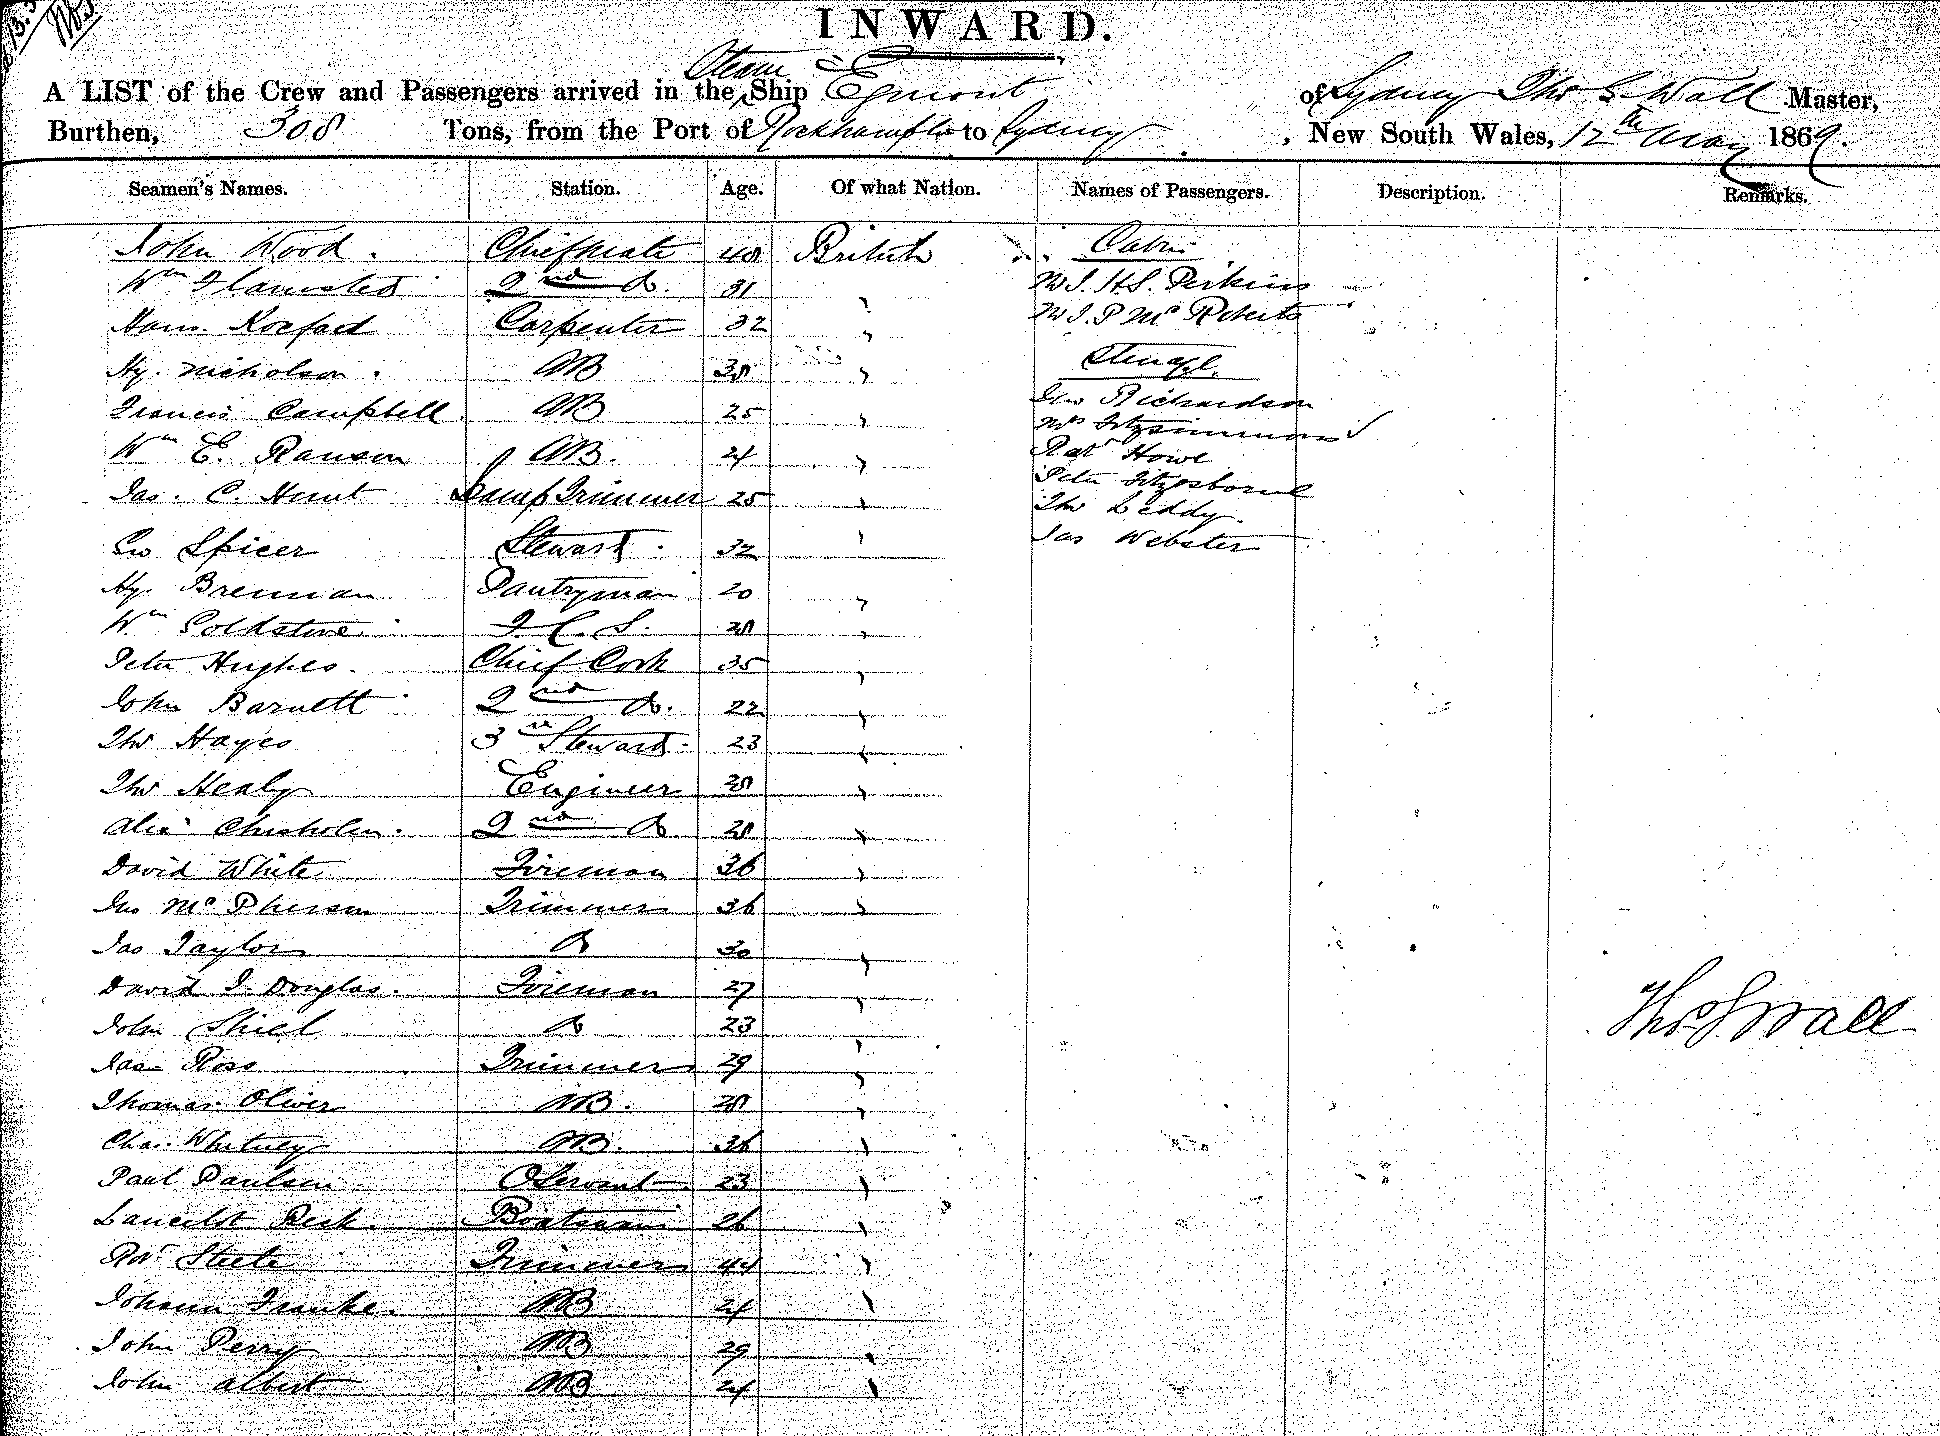 INWARD.
A LIST of the Crew and Passengers arrived in the Steam Ship Egmont of Sydney Thos S Wall Master,
Burthen, 308 Tons, from the Port of Rockhampton to Sydney, New South Wales, 12th May 1869.
Seamen's Names. Station. Age. Of what Nation. Names of Passengers. Description. Remarks.
John Wood. Chief Mate 48 British Cabin
Wm 2nd Do. 31 " H S. Perkins
Hans Carpenter 32 " Mc Roberts
Hy. Nicholson. AB 38 " Steerage
Francis Campbell. AB 25 " Richardson
Wm E. Ranson AB. 24 " Fitzsimmons
Howe
Jas. C. Hunt Lamp Trimmer 25 " Peter
Thos Leddy.
Geo Spicer Steward. 32 " Jas Webster
Hy. Brennan Pantryman 20 "
Wm Goldstine 28 "
Peter Hughes. Chief Cook 35 "
John Barnett 2nd Do. 22 "
Thos Hayes 3rd Steward. 23 "
Thos Healy Engineer 28 "
Alexr Chisholm. 2nd Do. 28 "
David White Fireman 36 "
Jno McPherson Trimmer 36 "
Jas Taylor Do 30 "
David J. Douglas. Fireman 27 "
John Shiel Do 23 "
Thos S Wall
Jas Ross Trimmer 29 "
Thomas Oliver AB. 28 "
Chas. Whitney AB. 36 "
Paul Paulsen 23 "
Lancelot Peek. Boatswain 26 "
Robt Steele Trimmer 44 "
Johann Franke. AB 24 "
John Perry AB 29 "
John Albert AB 24 "